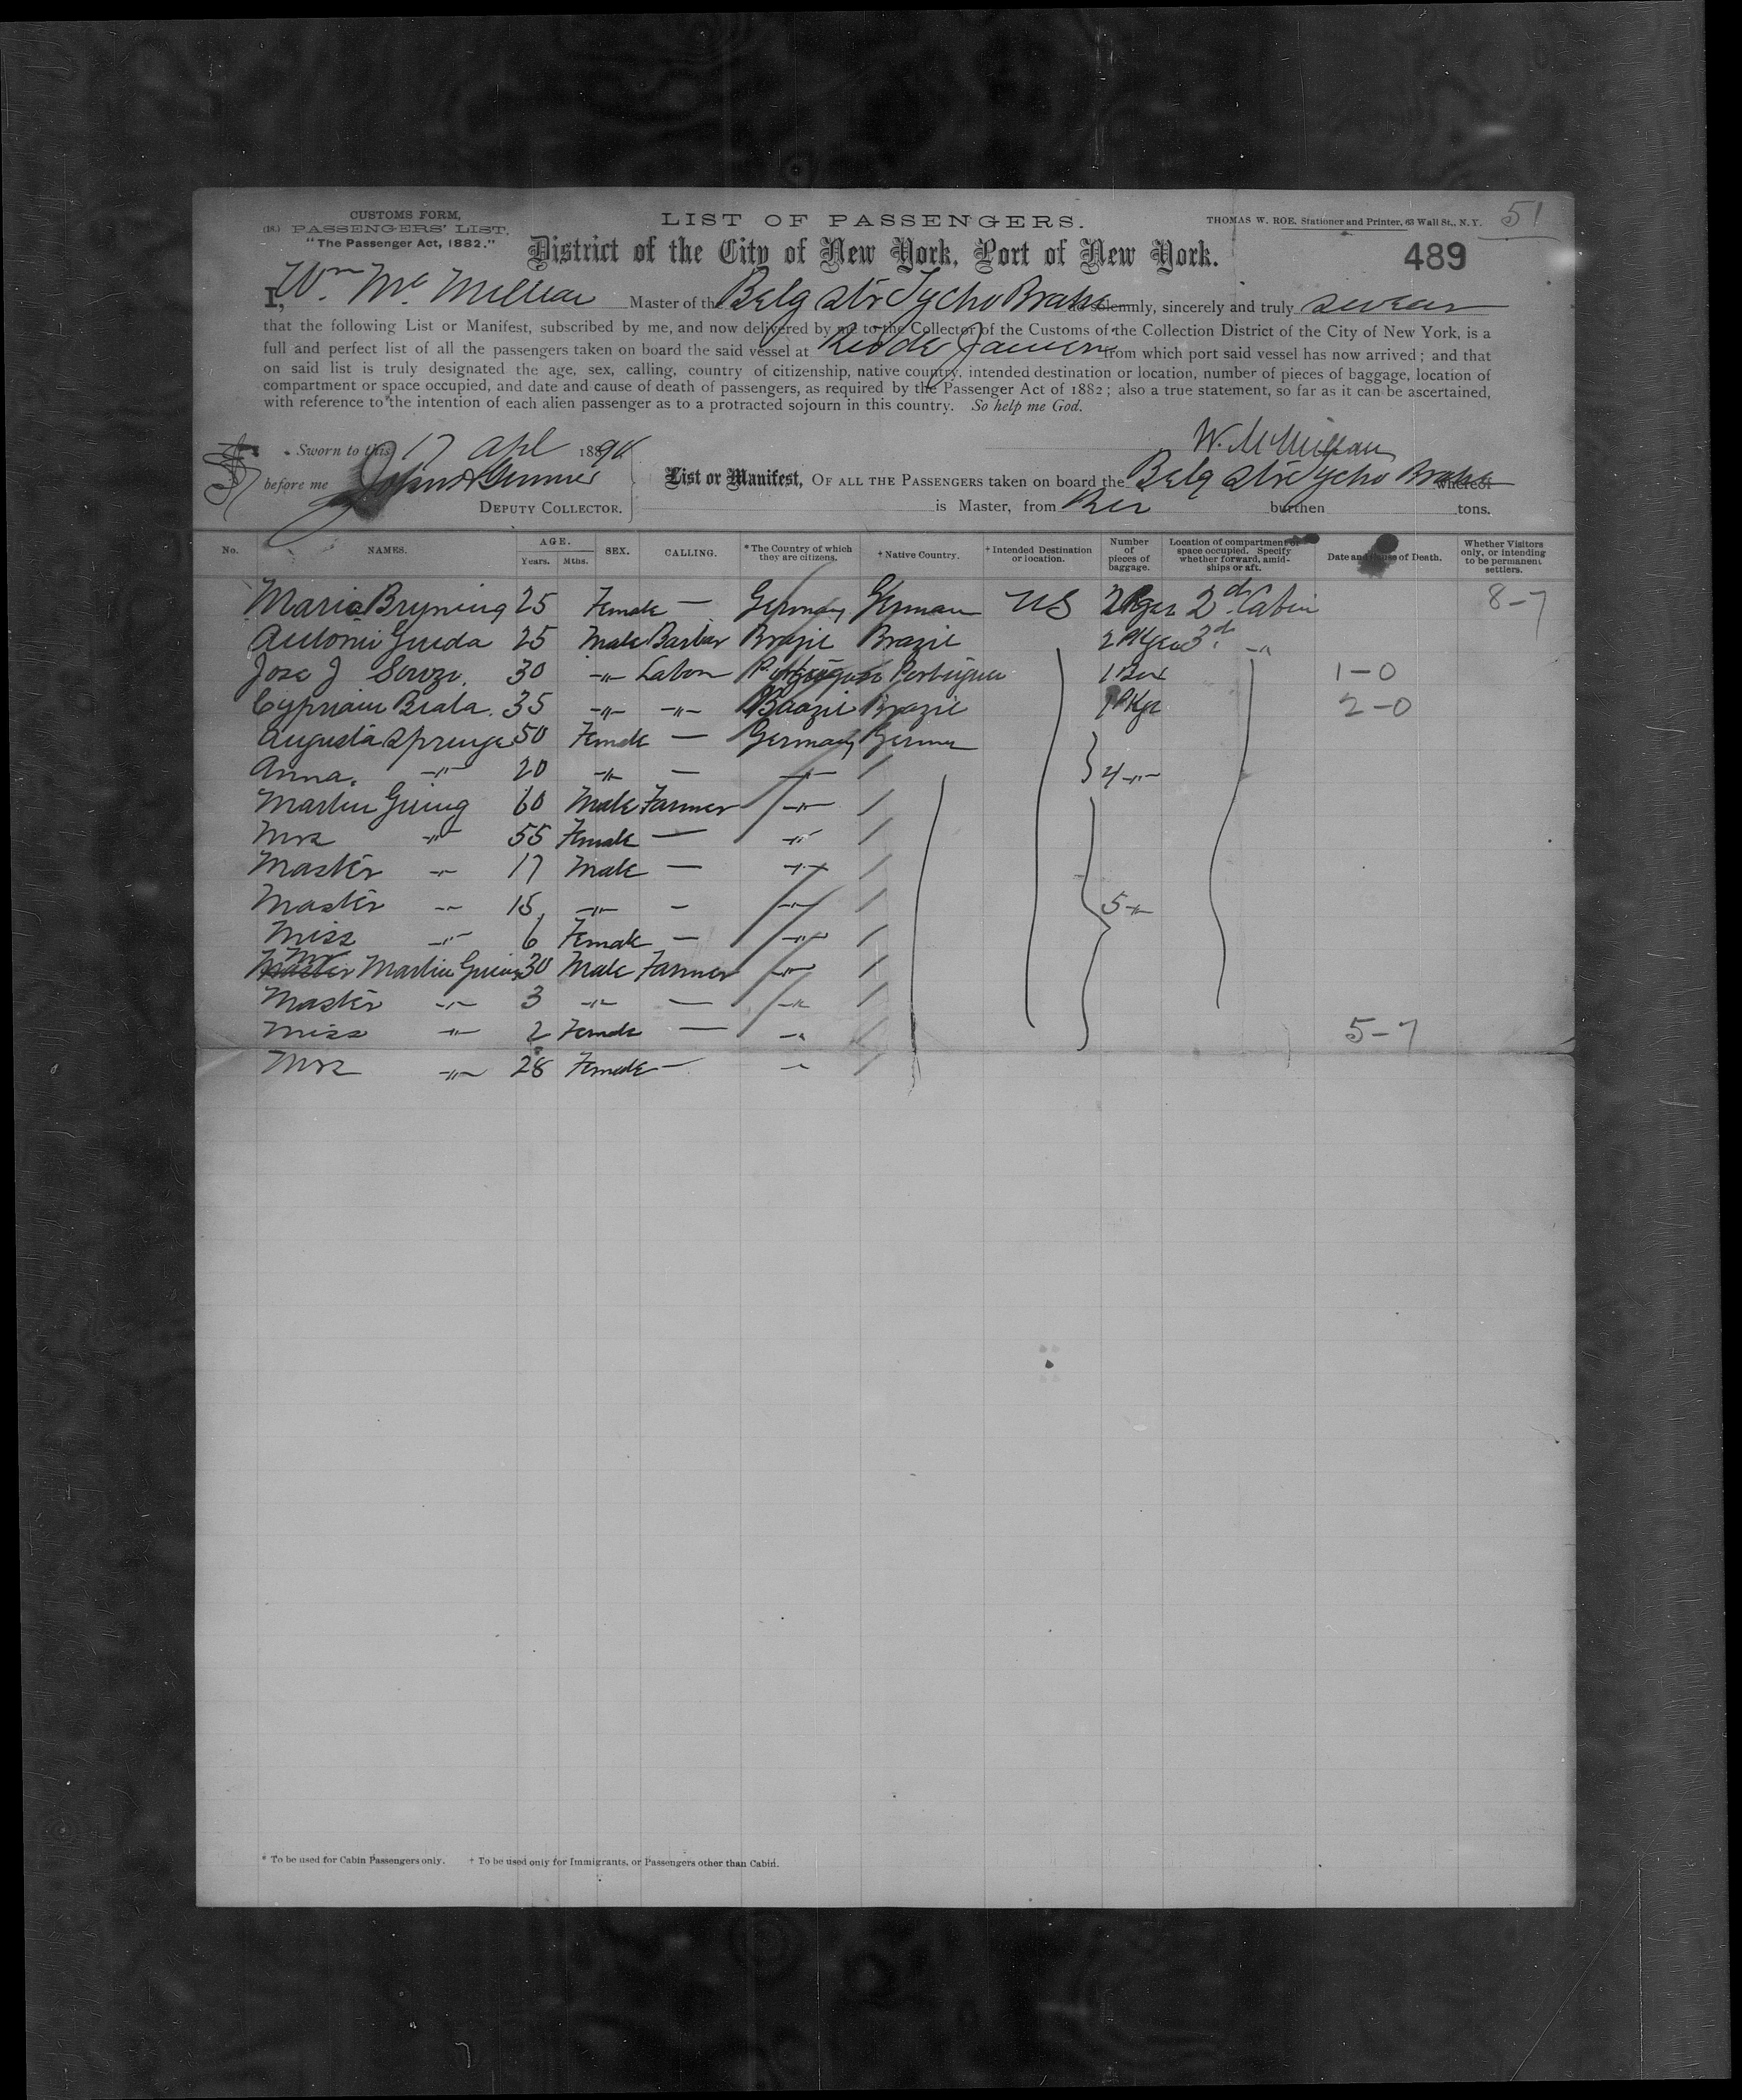 CUSTOMS FORM,
(18.) PASSENGERS' LIST.
"The Passenger Act, 1882."
LIST OF PASSENGERS.
THOMAS W. ROE, Stationer and Printer, 63 Wall St., N.Y.
51
District of the City of New York, Port of New York.
489
I, Wm Mc Millan Master of the Belg Str Tycho Brahe do solemnly, sincerely and truly swear
that the following List or Manifest, subscribed by me, and now delivered by me to the Collector of the Customs of the Collection District of the City of New York, is a
full and perfect list of all the passengers taken on board the said vessel at Rio de Janeiro from which port said vessel has now arrived; and that
on said list is truly designated the age, sex, calling, country of citizenship, native country, intended destination or location, number of pieces of baggage, location of
compartment or space occupied, and date and cause of death of passengers, as required by the Passenger Act of 1882; also a true statement, so far as it can be ascertained,
with reference to the intention of each alien passenger as to a protracted sojourn in this country. So help me God.
W. McMillan
Sworn to this 17 Apl 1890
before me John
DEPUTY COLLECTOR.
List or Manifest, OF ALL THE PASSENGERS taken on board the Belg Str Tycho Brahe whereof
is Master, from Rio burthen tons.
No. NAMES. AGE. Years. Mths. SEX. CALLING. * The Country of which they are citizens. † Native Country. † Intended Destination or location. Number of pieces of baggage. Location of compartment or space occupied. Specify whether forward, amidships or aft. Date and Cause of Death. Whether Visitors only, or intending to be permanent settlers.
Maria Bryning 25 Female — Germany German US 2 Pgs 2d Cabin 8-7
Antonio Guida 25 Male Barber Brazil Brazil 2 Pkgs 3d "
Jose J Souza 30 " Labor Portuguese Portuguese 1 Box 1-0
Cypriain Biala 35 " " Brazil Brazil 1 Pkge 2-0
Augusta Sprenge 50 Female — Germany German
Anna " 20 " — " / 4 "
Martin Gring 60 Male Farmer " /
Mrs " 55 Female — " /
Master " 17 Male — " /
Master " 15 " — " / 5 "
Miss " 6 Female — " /
Mr Martin Gring 30 Male Farmer " /
Master " 3 " — " /
Miss " 2 Female — " / 5-7
Mrs " 28 Female — " /
* To be used for Cabin Passengers only. † To be used only for Immigrants, or Passengers other than Cabin.